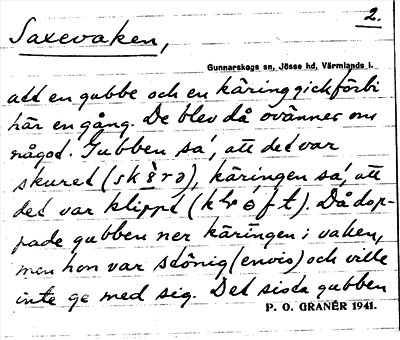 2.
Saxevaken,
Gunnarskogs sn, Jösse hd, Värmlands l.
att en gubbe och en käring gick förbi
här en gång. De blev då ovänner om
något. Gubben sa', att det var
skuret (skɛ̀rə), käringen sa', att
det var klippt (klʏ̀ft). Då dop-
pade gubben ner käringen i vaken,
men hon var stönig (envis) och ville
inte ge med sig. Det sista gubben
P. O. GRANÉR 1941.